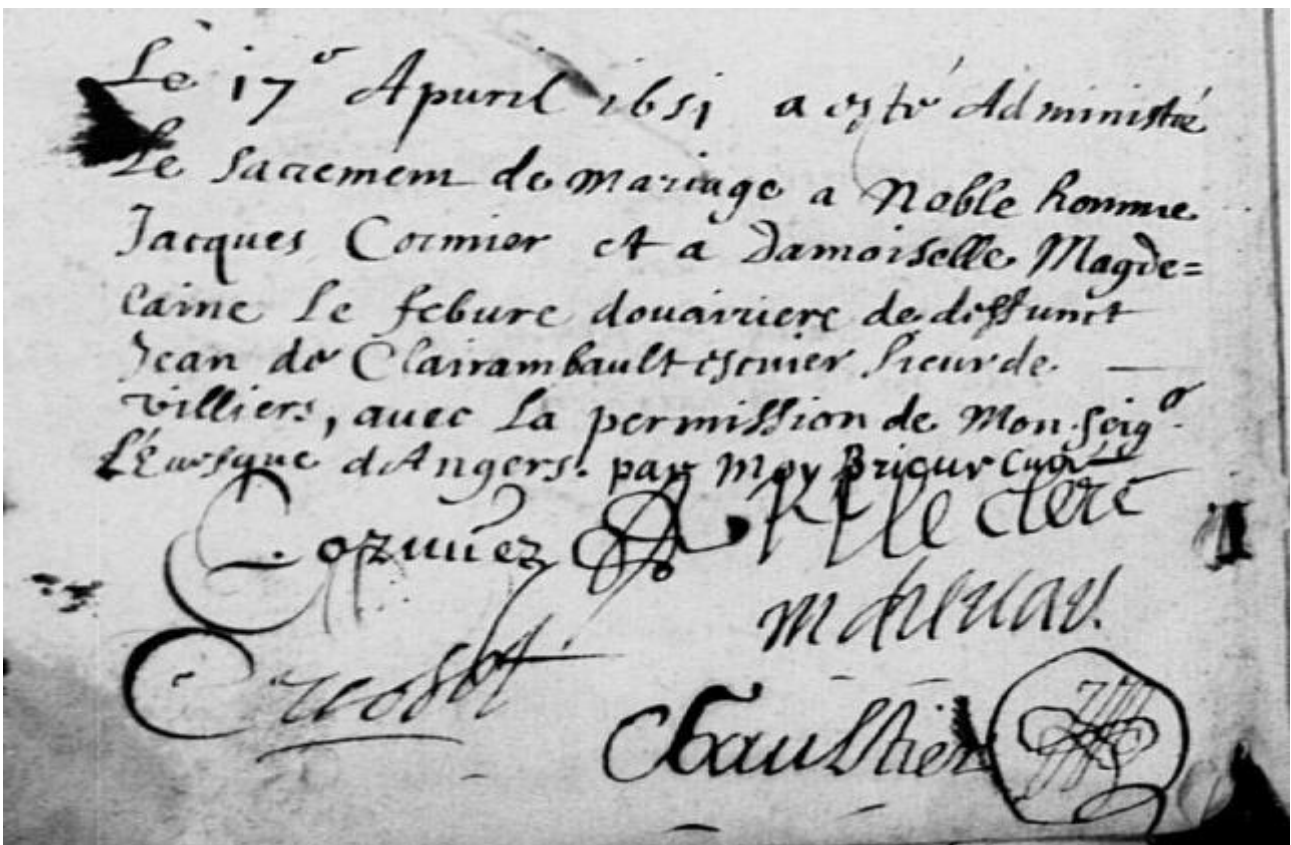 Le 17e Apuril 1651 a esté Administré
Le sacrement de mariage a Noble homme
Jacques Cormier et a Damoiselle Magde=
laine le febure douairiere de deffunct
Jean de Clairambault escuier sieur de
villiers, auec la permission de Mon seigr
L'Euesque d'Angers. par moy Prieur Curé
Cormier Leclerc